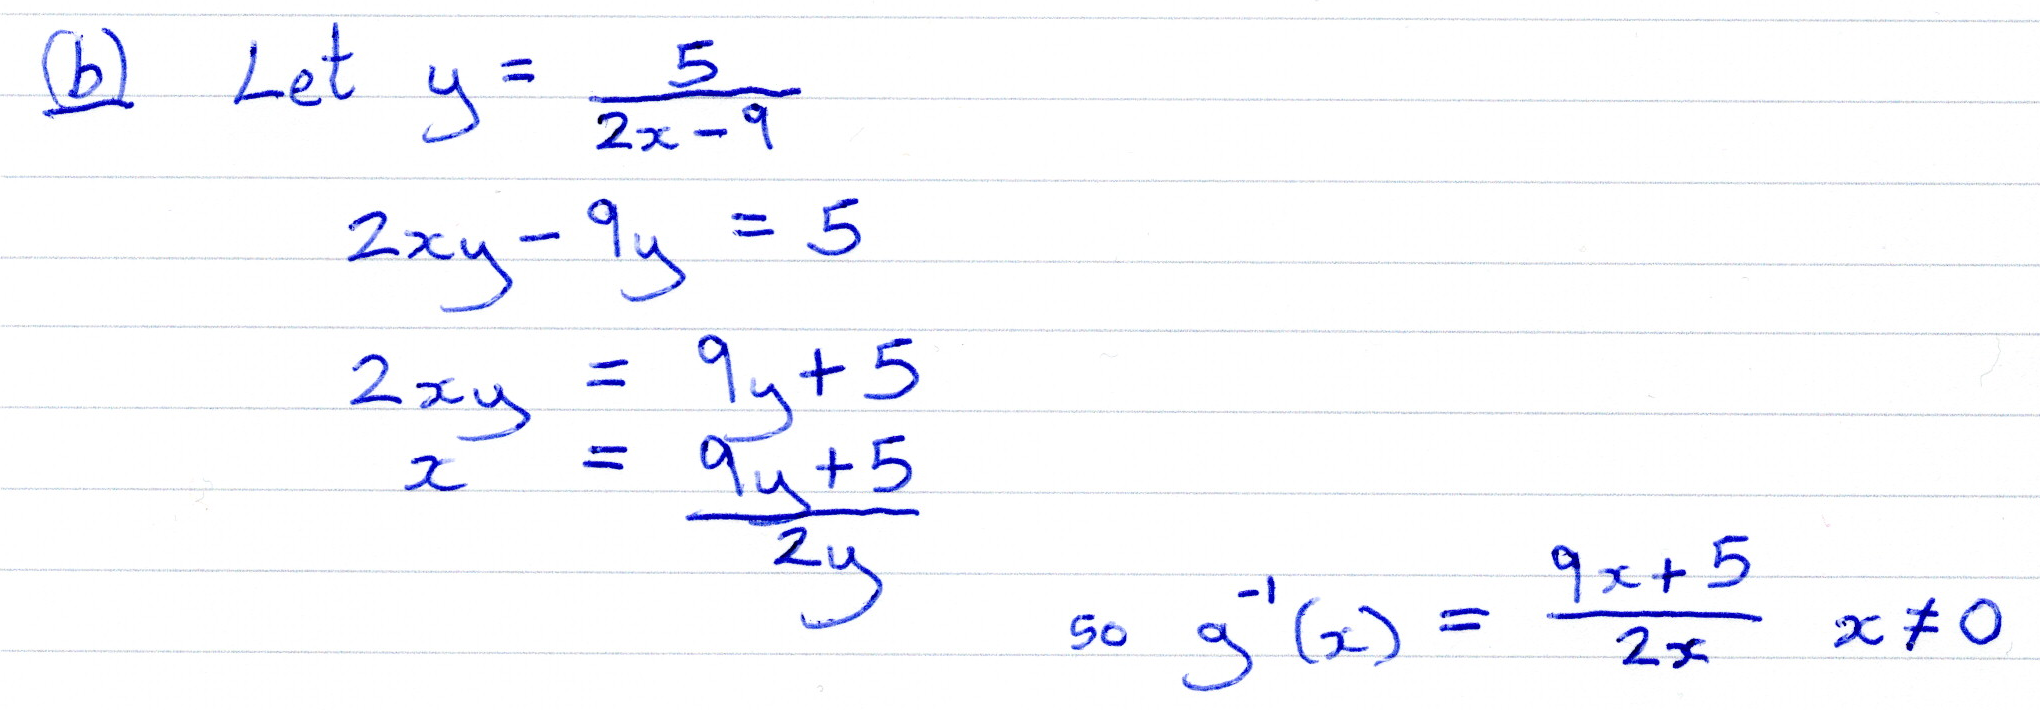 (b) Let y = 5/(2x - 9)
2xy - 9y = 5
2xy = 9y + 5
x = (9y + 5)/(2y)
so g⁻¹(x) = (9x + 5)/(2x) x ≠ 0